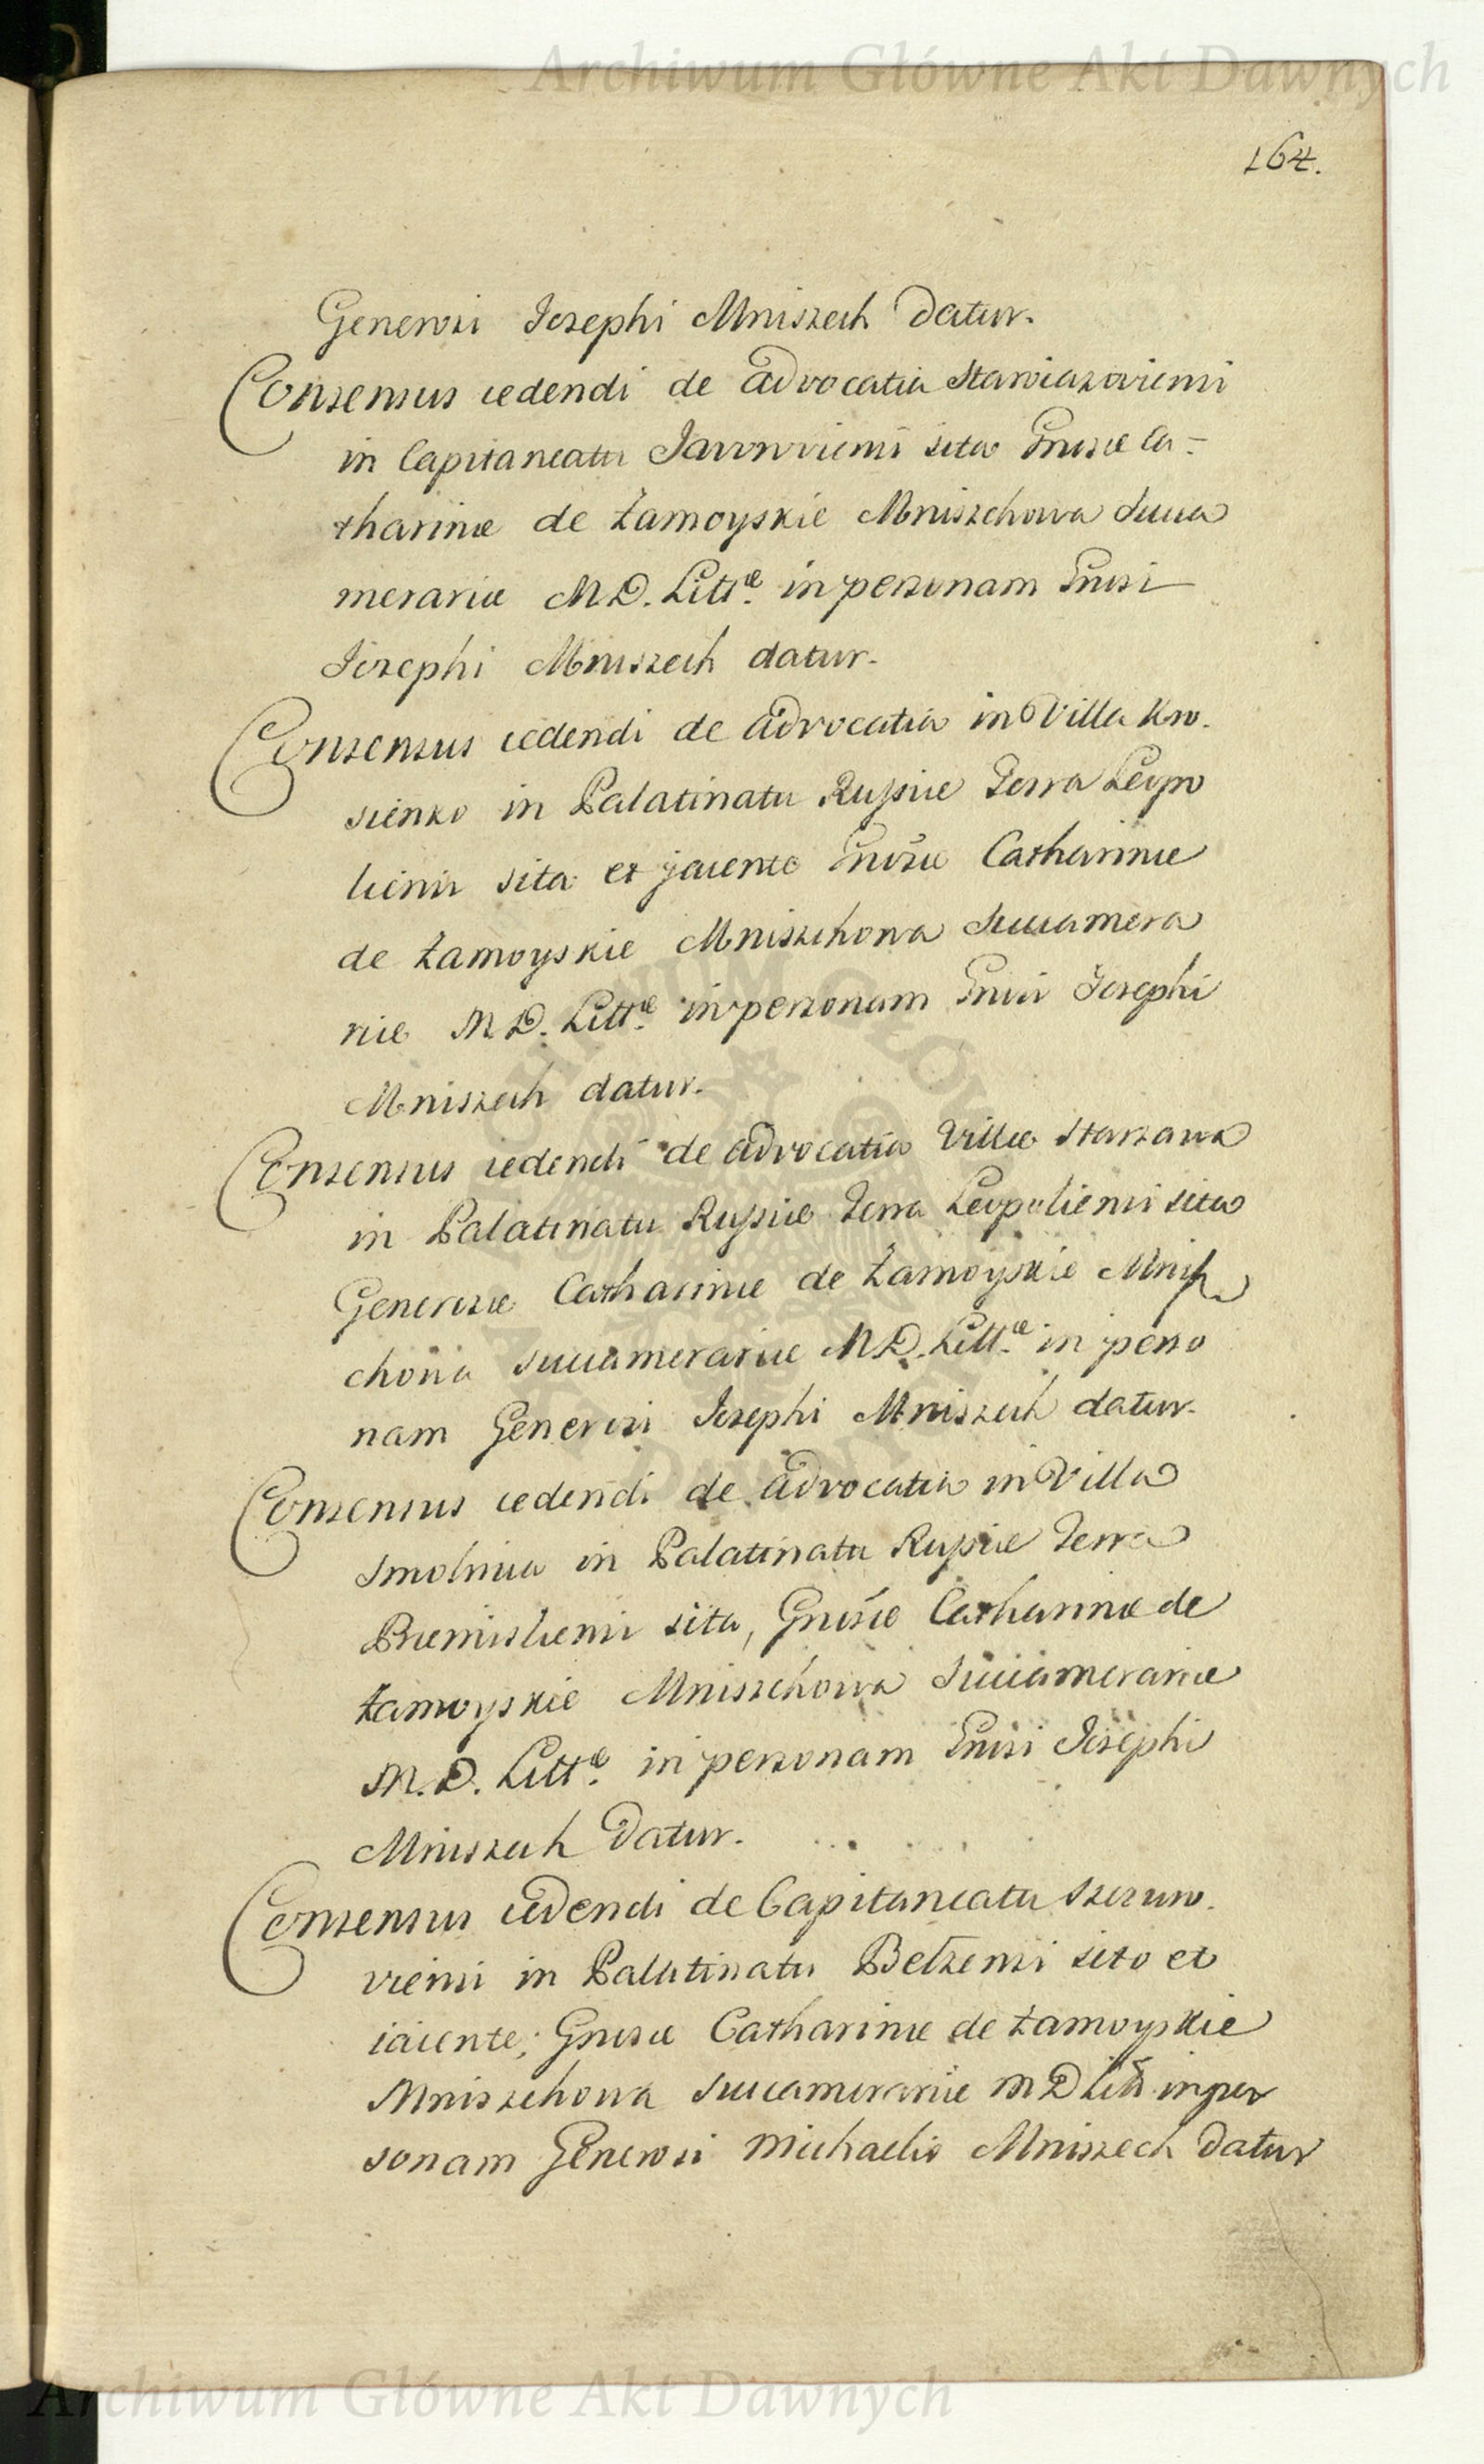 Archiwum Główne Akt Dawnych
164.
Generosi Josephi Mniszech datur.
Consensus cedendi de advocatia Starzaw
in Capitaneatu Javoroviensi sita Gnosæ Ca-
tharinæ de Zamoyskie Mniszchowa Succa
merariæ M. D. Littæ. in personam Gnosi
Josephi Mniszech datur.
Consensus cedendi de advocatia in Villa Kro-
sienko in Palatinatu Russiæ Terra Leopo
liensi sita et jacente Gnosæ Catharinæ
de Zamoyskie Mniszchowa Succamera
riæ M. D. Littæ. in personam Gnosi Josephi
Mniszech datur.
Consensus cedendi de advocatia Villæ Starzawa
in Palatinatu Russiæ Terra Leopoliensi sita
Generosæ Catharinæ de Zamoyskie Mnisz
chowa Succamerariæ M. D. Littæ. in perso
nam Generosi Josephi Mniszech datur.
Consensus cedendi de advocatia in Villa
Smolnica in Palatinatu Russiæ Terra
Præmisliensi sita, Gnosæ Catharinæ de
Zamoyskie Mniszchowa Succamerariæ
M. D. Littæ. in personam Gnosi Josephi
Mniszech datur.
Consensus cedendi de Capitaneatu Szczuro-
viensi in Palatinatu Belzensi sito et
iacente; Gnosæ Catharinæ de Zamoyskie
Mniszchowa Succamerariæ M D Litt. in per
sonam Generosi Michaelis Mniszech datur
Archiwum Główne Akt Dawnych